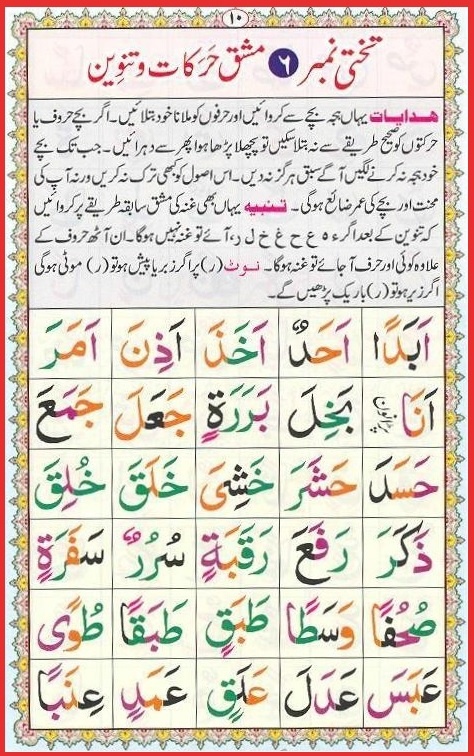 ۱۰
تختی نمبر ۶ مشق حَرَکات و تنوِین
ھدایات یہاں ہجہ بچے سے کروائیں اور حرفوں کو ملانا خود بتلائیں۔ اگر بچے حروف یا
حرکتوں کو صحیح طریقے سے نہ بتلا سکیں تو پچھلا پڑھا ہوا پھر سے دہرائیں۔ جب تک بچے
خود ہجہ نہ کرنے لگیں آگے سبق ہرگز نہ دیں۔ اس اصول کو کبھی ترک نہ کریں ورنہ آپ کی
محنت اور بچے کی عمر ضائع ہوگی۔ تنبیہ یہاں بھی غنہ کی مشق سابقہ طریقے پر کروائیں
کہ تنوین کے بعد اگر ء ہ ع ح غ خ ل ر، آئے تو غنہ نہیں ہوگا۔ ان آٹھ حروف کے
علاوہ کوئی اور حرف آجائے تو غنہ ہوگا۔ نوٹ (ر) پر اگر زبر یا پیش ہو تو (ر) موٹی ہوگی
اگر زیر ہو تو (ر) باریک پڑھیں گے۔
اَبَدًا اَحَدٌ اَخَذَ اَذِنَ اَمَرَ
اَنَا بَخِلَ بَرَرَةٍ جَعَلَ جَمَعَ
حَسَدَ حَشَرَ خَشِیَ خَلَقَ خُلِقَ
ذَکَرَ رَفَعَ رَقَبَةٍ سُرُرٌ سَفَرَةٍ
صُحُفًا وَسَطًا طَبَقٍ طَبَقًا طُوًی
عَبَسَ عَدَلَ عَلَقٍ عَمَدٍ عِنَبًا